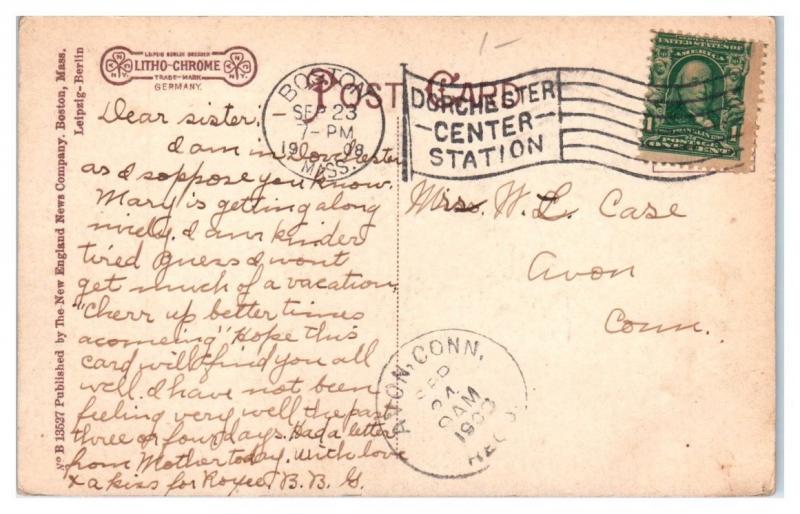 LEIPZIG BERLIN DRESDEN
LITHO-CHROME
TRADE-MARK
GERMANY.
POST CARD
BOSTON
SEP 23
7-PM
1908
MASS.
DORCHESTER
CENTER
STATION
UNITED STATES OF
AMERICA
FRANKLIN
POSTAGE
ONE CENT
No B 13527 Published by The New England News Company, Boston, Mass.
Leipzig-Berlin
Dear sister;-
I am in Dorchester
as I suppose you know.
Mary is getting along
nicely. I am kinder
tired Guess I wont
get much of a vacation,
"Cherr up better times
acomeing" Hope this
card will find you all
well. I have not been
feeling very well the past
three or four days. Had a letter
from Mother today. With love
& a kiss for Royce. B. B. G.
Mrs. W. L. Case
Avon
Conn.
AVON, CONN.
SEP
24
AM
1908
REC'D.